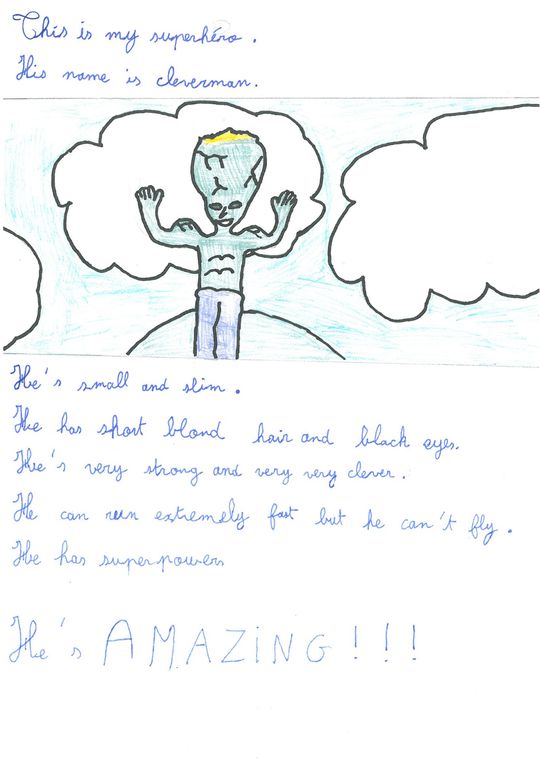 This is my superhéro.
His name is cleverman.
He's small and slim.
He has short blond hair and black eyes.
He's very strong and very very clever.
He can run extremely fast but he can't fly.
He has superpowers
He's AMAZiNG!!!